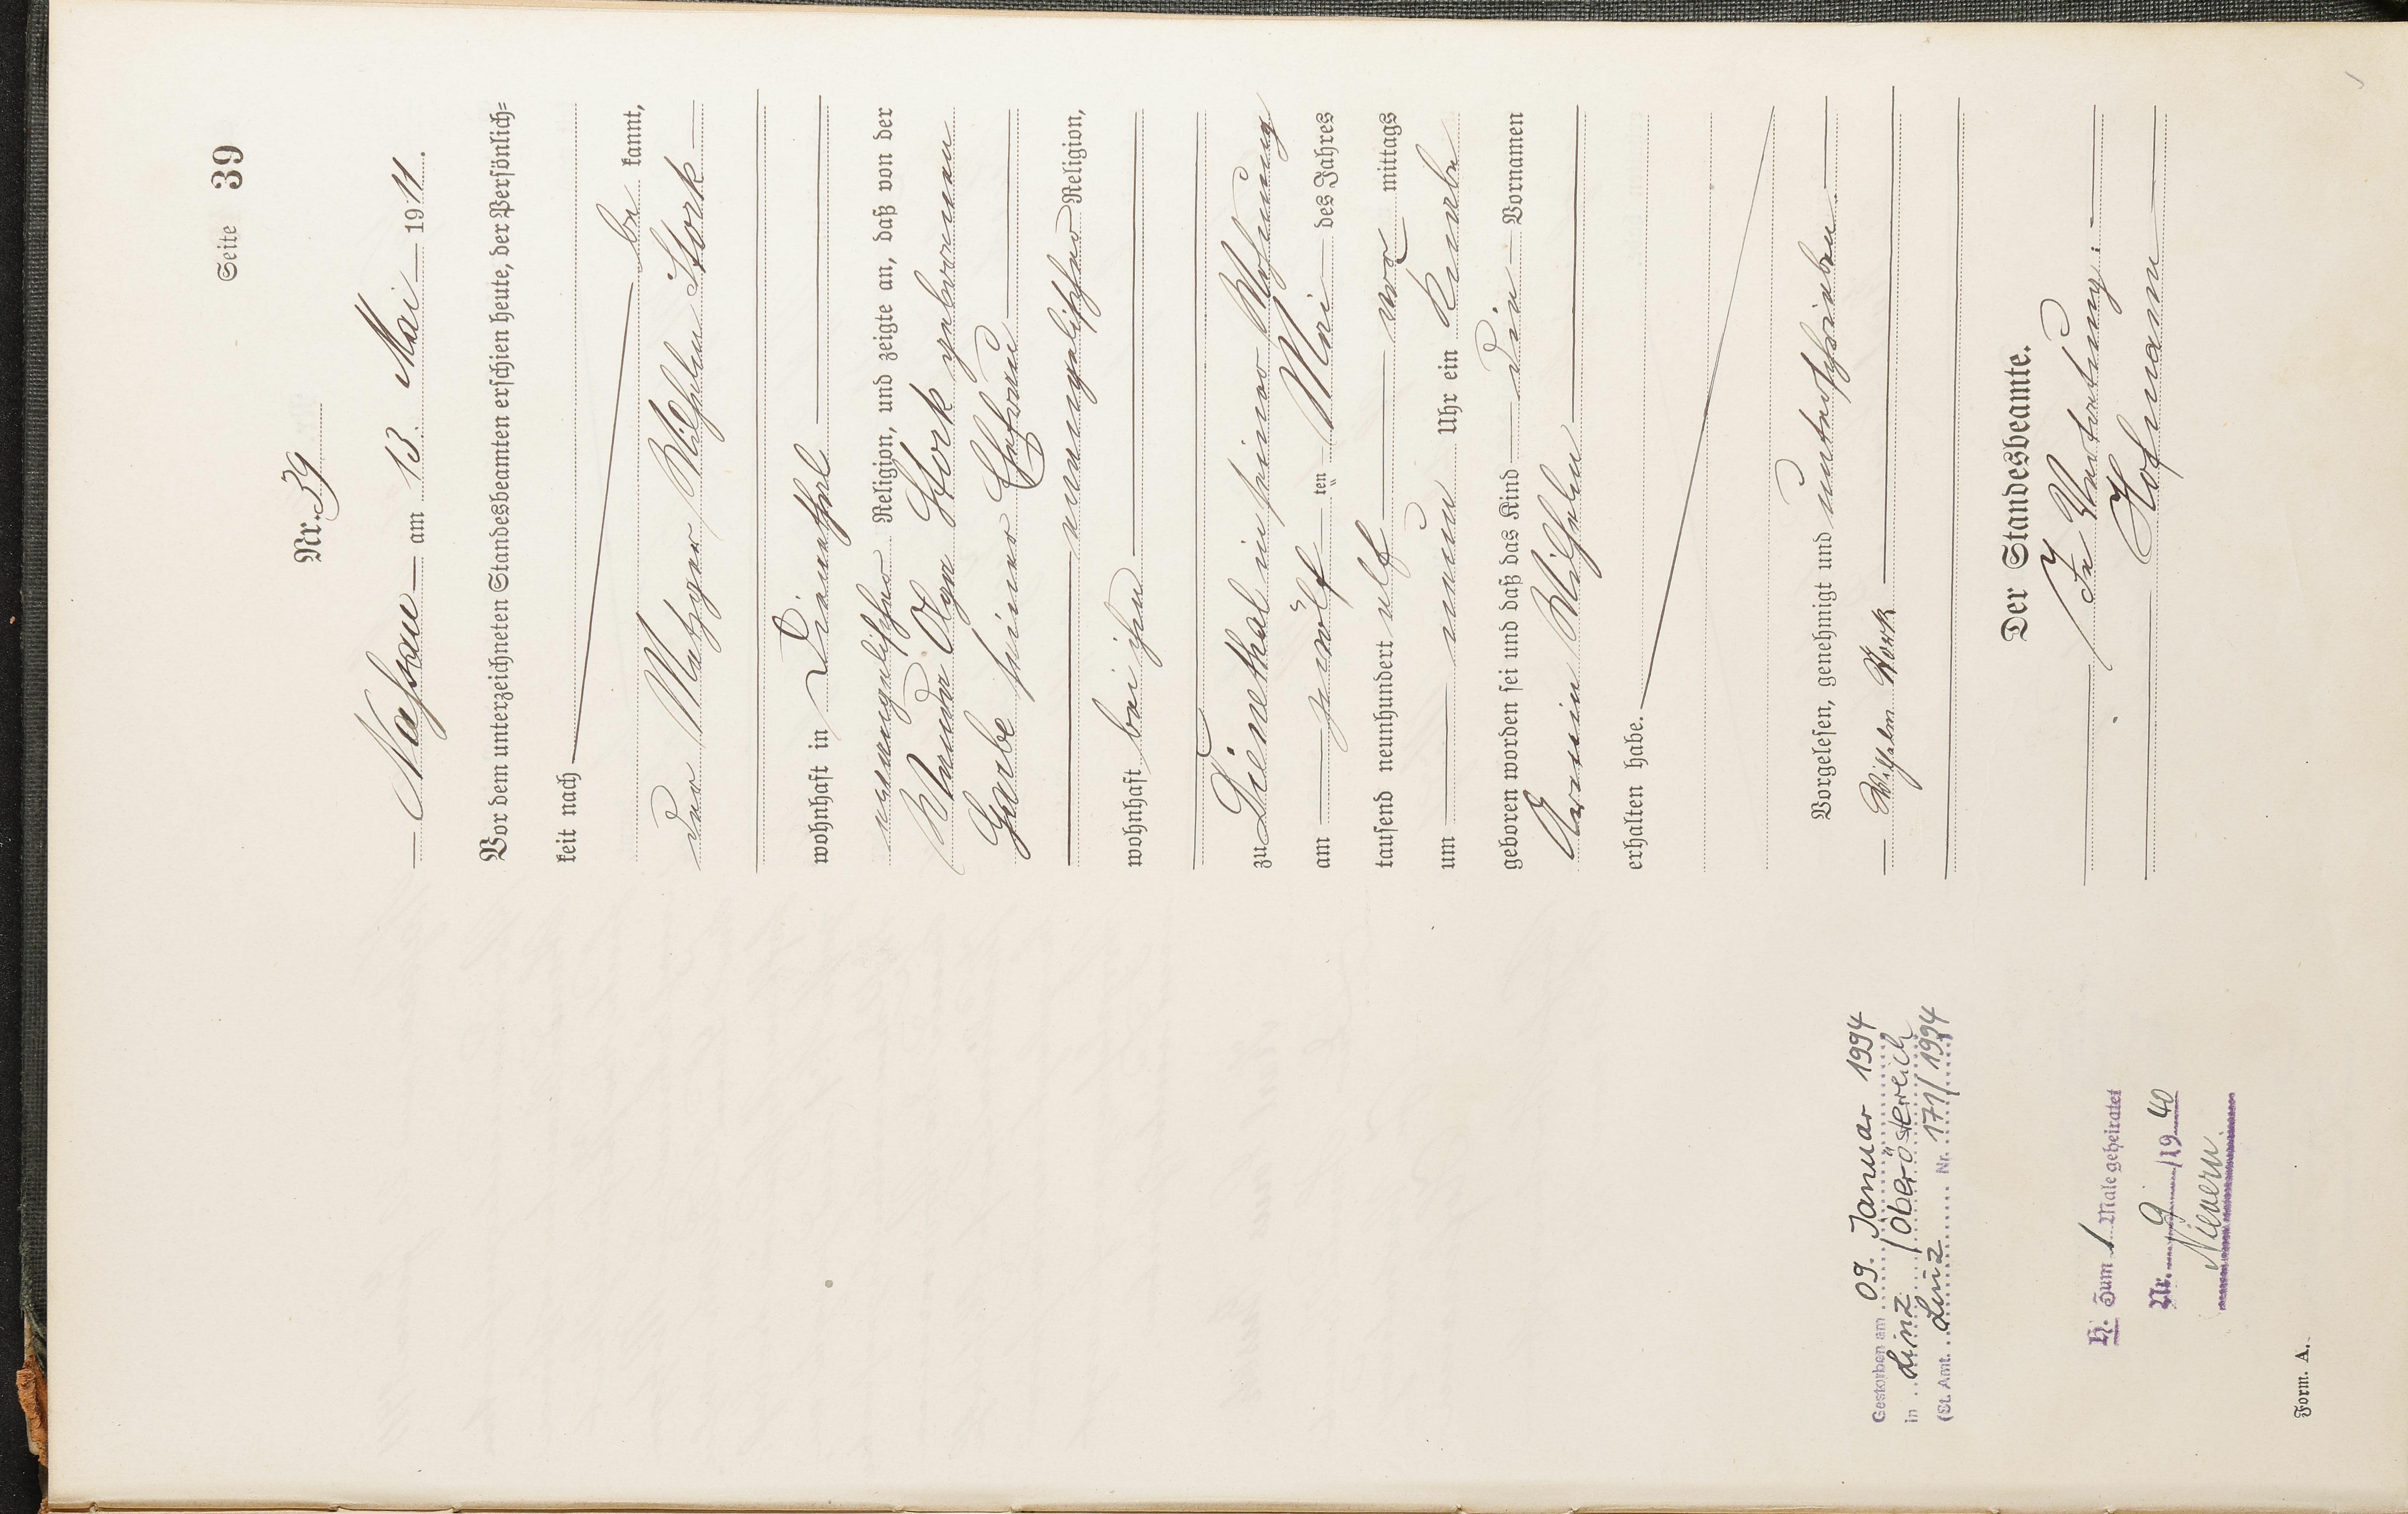 Seite 39
Nr. 39
Nassau am 13. Mai 1911.
Vor dem unterzeichneten Standesbeamten erschien heute, der Persönlich=
keit nach
be kannt,
der Metzger Wilhelm Stork
wohnhaft in Dienethal
evangelischer Religion, und zeigte an, daß von der
Olga Stork geborenen
Garbe seiner Ehefrau
evangelischer Religion,
wohnhaft bei ihm
zu Dienethal in seiner Wohnung
am zwölf ten Mai des Jahres
tausend neunhundert elf vor mittags
um neun Uhr ein Knabe
geboren worden sei und daß das Kind die Vornamen
Erwin Wilhelm
erhalten habe.
Vorgelesen, genehmigt und unterschrieben.
Wilhelm Stork
Der Standesbeamte.
In Vertretung:
Hofmann
Gestorben am 09. Januar 1994
in Linz / Oberösterreich
(St. Amt. Linz Nr. 171/1994
H. Zum 1 Male geheiratet
Nr. 9 /1940
Nievern
Form. A.